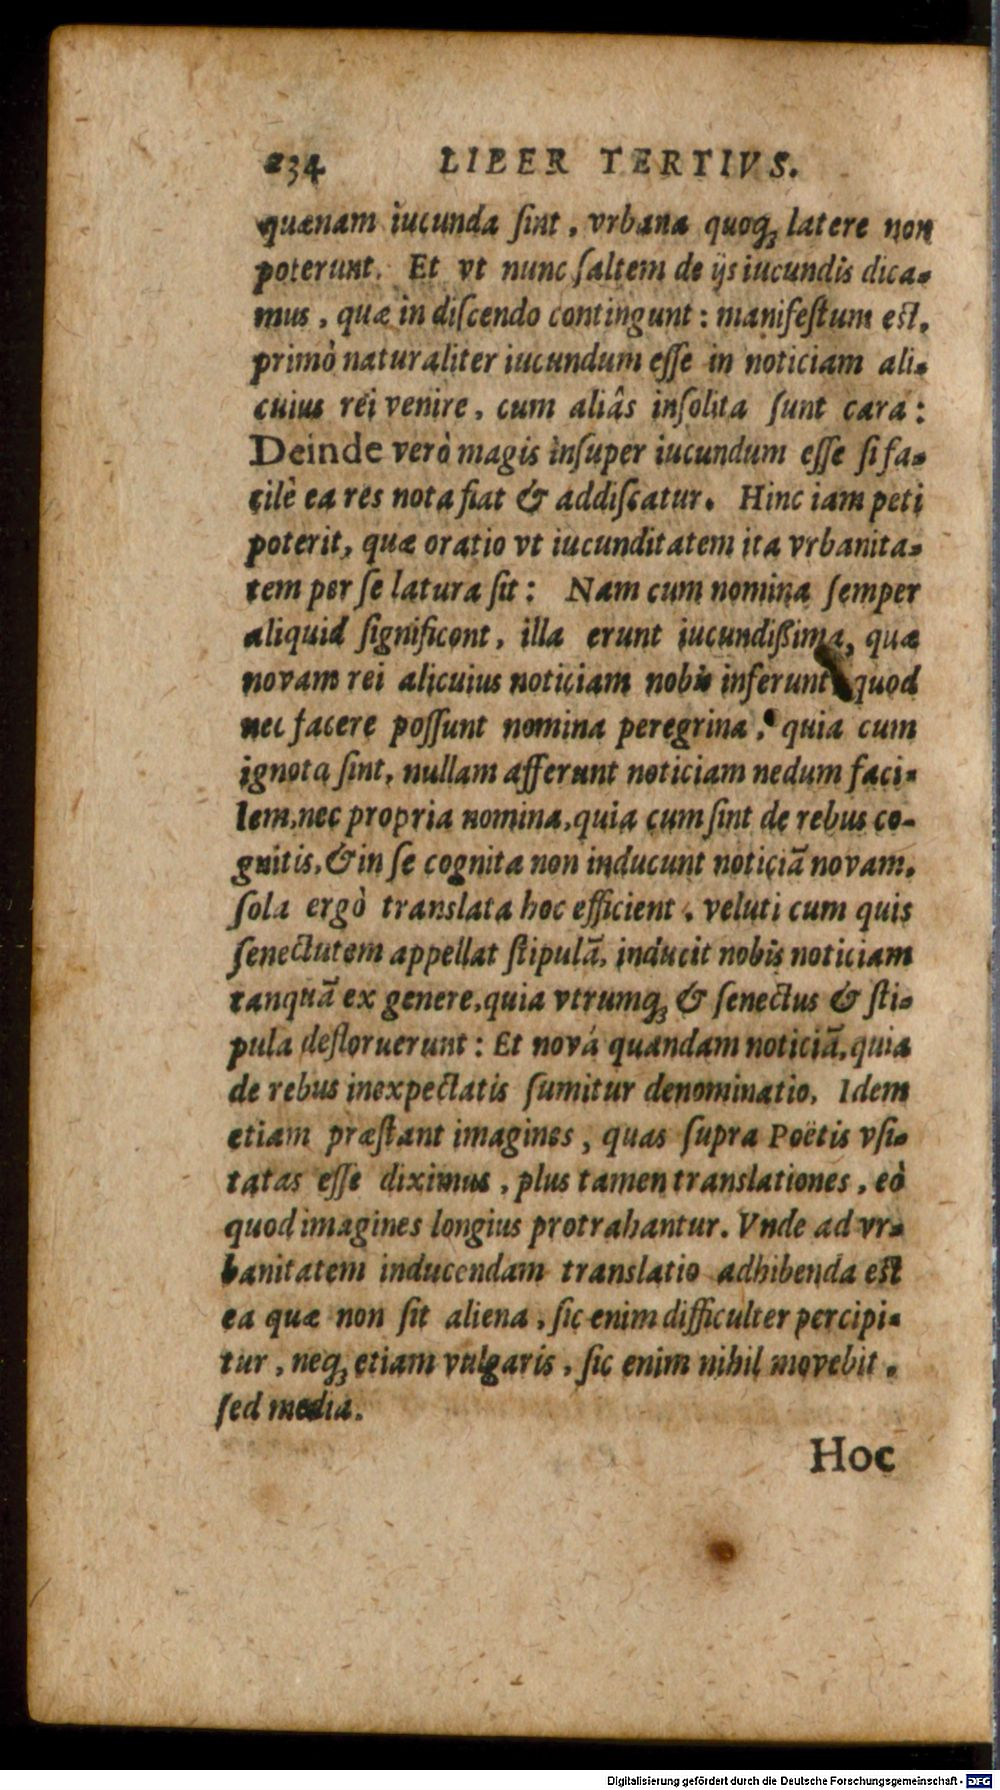 234 LIBER TERTIVS.
quænam iucunda ſint, vrbana quoq; latere non
poterunt. Et vt nunc ſaltem de ijs iucundis dica-
mus, quæ in diſcendo contingunt: manifeſtum eſt,
primò naturaliter iucundum eſſe in noticiam ali-
cuius rei venire, cum aliâs inſolita ſunt cara:
Deinde verò magis inſuper iucundum eſſe ſi fa-
cilè ea res nota fiat & addiſcatur. Hinc iam peti
poterit, quæ oratio vt iucunditatem ita vrbanita-
tem per ſe latura ſit: Nam cum nomina ſemper
aliquid significent, illa erunt iucundißima, quæ
novam rei alicuius noticiam nobis inferunt quod
nec facere poſſunt nomina peregrina, quia cum
ignota ſint, nullam afferunt noticiam nedum faci-
lem, nec propria nomina, quia cum ſint de rebus co-
gnitis, & in ſe cognita non inducunt noticiã novam.
ſola ergò translata hoc efficient, veluti cum quis
ſenectutem appellat ſtipulã, inducit nobis noticiam
tanquã ex genere, quia vtrumq; & ſenectus & ſti-
pula defloruerunt: Et novã quandam noticiã, quia
de rebus inexpectatis ſumitur denominatio. Idem
etiam præſtant imagines, quas ſupra Poëtis vſi-
tatas eſſe diximus, plus tamen translationes, eò
quod imagines longius protrahantur. Vnde ad vr-
banitatem inducendam translatio adhibenda eſt
ea quæ non ſit aliena, ſic enim difficulter percipi-
tur, neq; etiam vulgaris, ſic enim nihil movebit,
ſed media.
Hoc
Digitalisierung gefördert durch die Deutsche Forschungsgemeinschaft - DFG